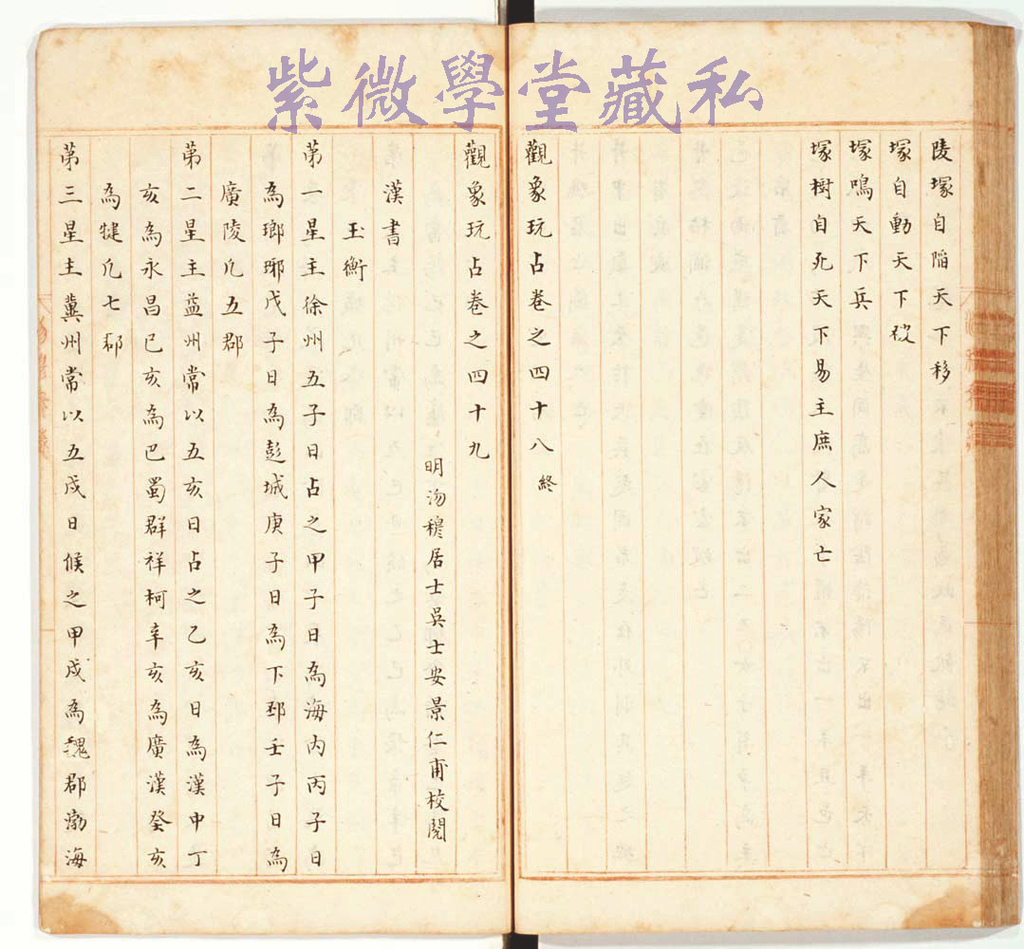 紫微學堂藏私
陵塚自陷天下移
塚自動天下役
塚鳴天下兵
塚樹自死天下易主庶人家亡
觀象玩占卷之四十八終
觀象玩占卷之四十九
明沕穆居士吳士安景仁甫校閱
漢書
玉衡
第一星主徐州五子日占之甲子日為海内丙子日
為瑯琊戊子日為彭城庚子日為下邳壬子日為
廣陵凡五郡
第二星主益州常以五亥日占之乙亥日為漢中丁
亥為永昌巳亥為巴蜀群祥柯辛亥為廣漢癸亥
為犍凡七郡
第三星主冀州常以五戌日候之甲戌為魏郡渤海